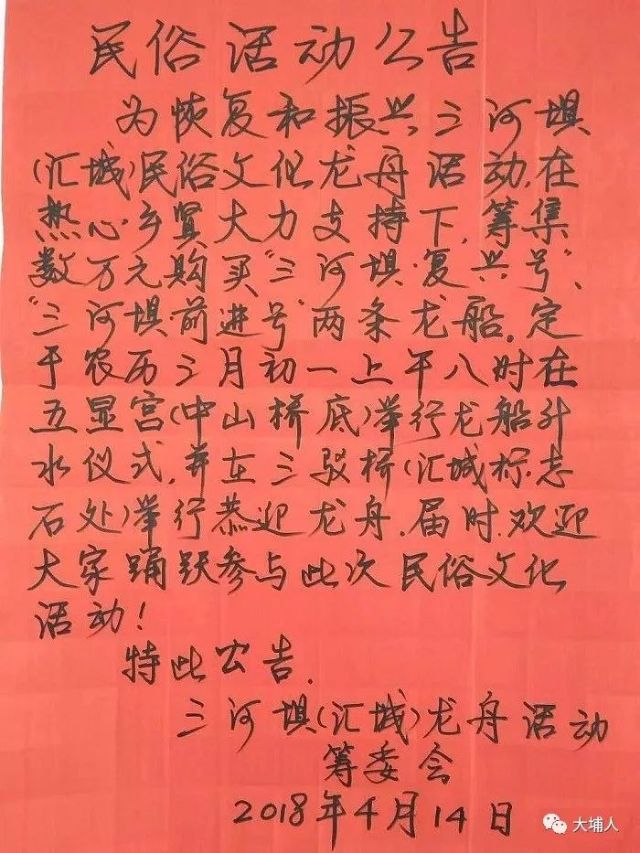 民俗活动公告
为恢复和振兴三河坝
(汇城)民俗文化龙舟活动,在
热心乡贤大力支持下,筹集
数万元购买“三河坝复兴号”、
“三河坝前进号”两条龙船,定
于农历三月初一上午八时在
五显宫(中山桥底)举行龙船升
水仪式,并在三驳桥(汇城标志
石处)举行恭迎龙舟,届时,欢迎
大家踊跃参与此次民俗文化
活动!
特此公告.
三河坝(汇城)龙舟活动
筹委会
2018年4月14日
大埔人